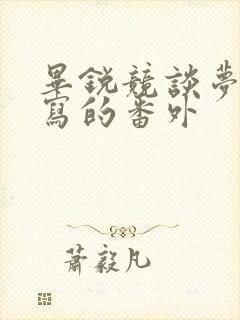 畢銳競談夢
寫的番外
蕭毅凡